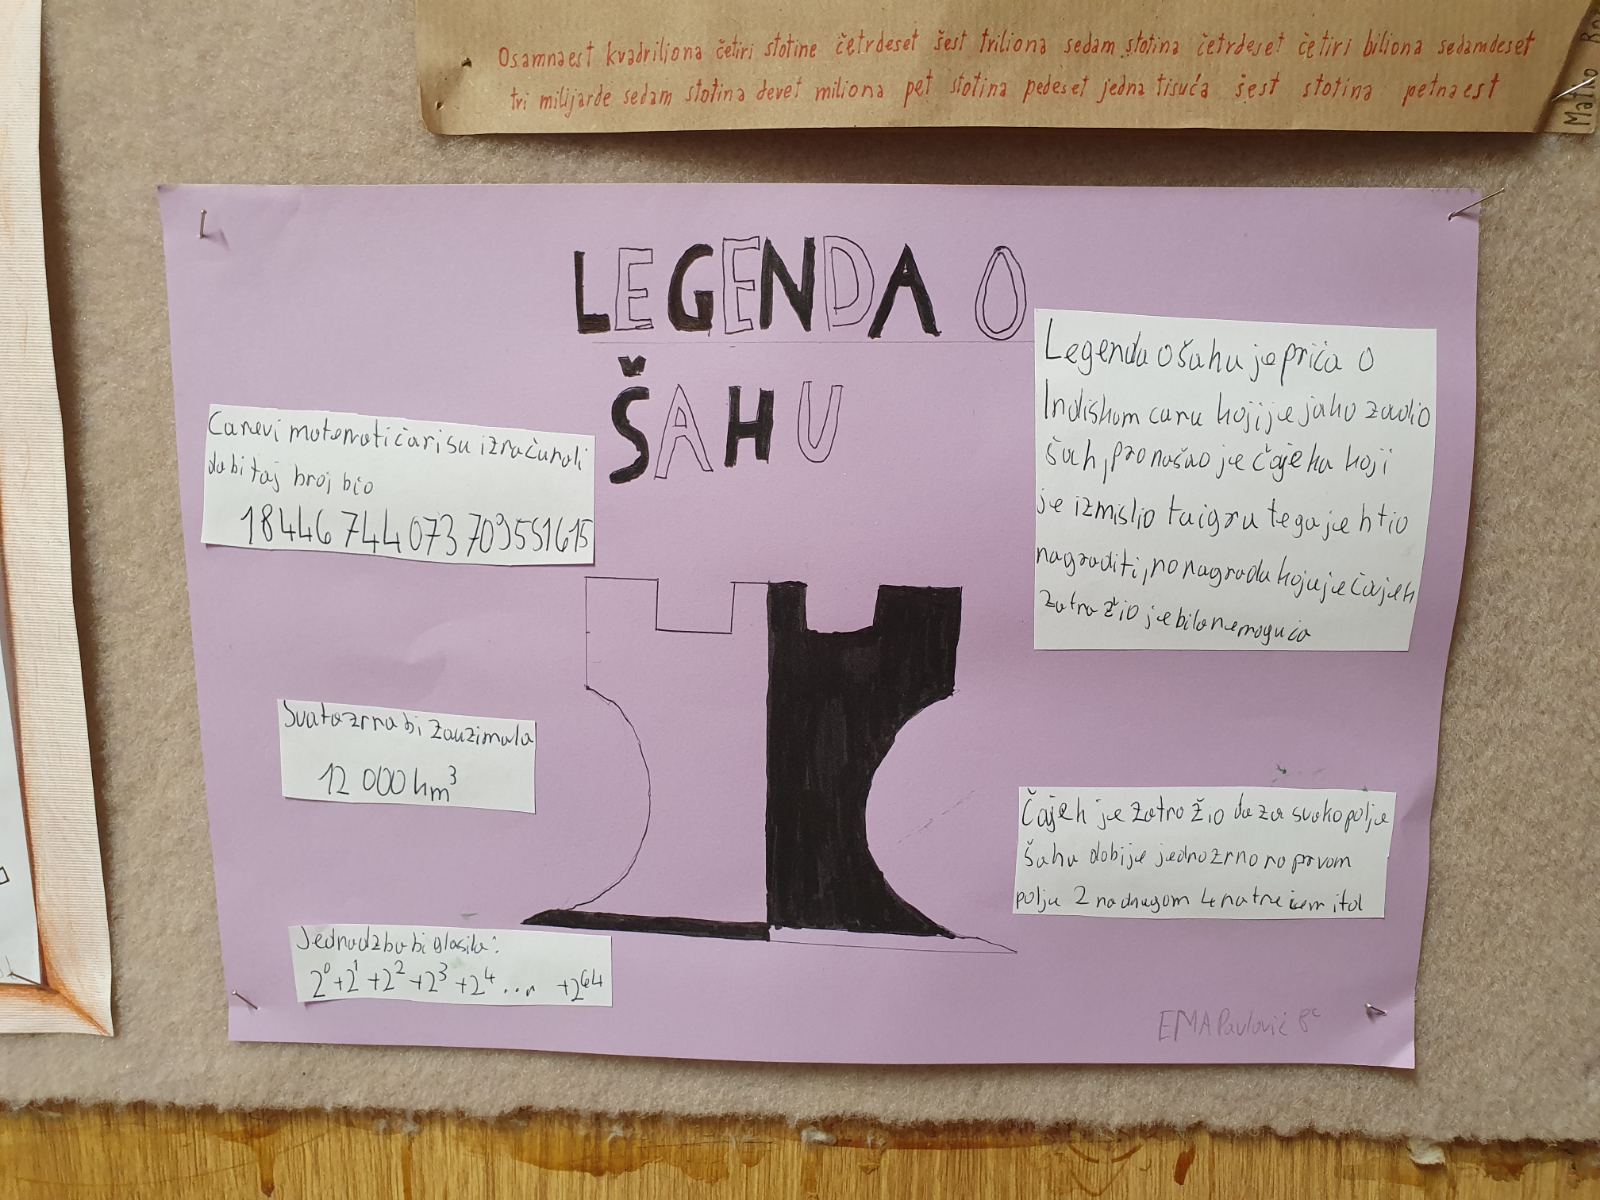 Osamnaest kvadriliona četiri stotine četrdeset šest triliona sedam stotina četrdeset četiri biliona sedamdeset
tri milijarde sedam stotina devet miliona pet stotina pedeset jedna tisuća šest stotina petnaest
Matko
LEGENDA O
ŠAHU
Legenda o šahu je priča o
Indiskom caru koji je jako zavolio
šah, pronašao je čojeka koji
je izmislio tu igru te ga je htio
nagraditi, no nagrada koju je čojek
zatražio je bila nemoguća
Carevi matematičari su izračunali
da bi taj broj bio
18446 744 073 709551615
Sva ta zrna bi zauzimala
12 000 km³
Čojek je zatražio da za svako polje
šahu dobije jedno zrno na prvom
polju 2 na drugom 4 na trećem itd
Jednadžba bi glasila:
2⁰+2¹+2²+2³+2⁴... +2⁶⁴
EMA Pavlović 8ᶜ